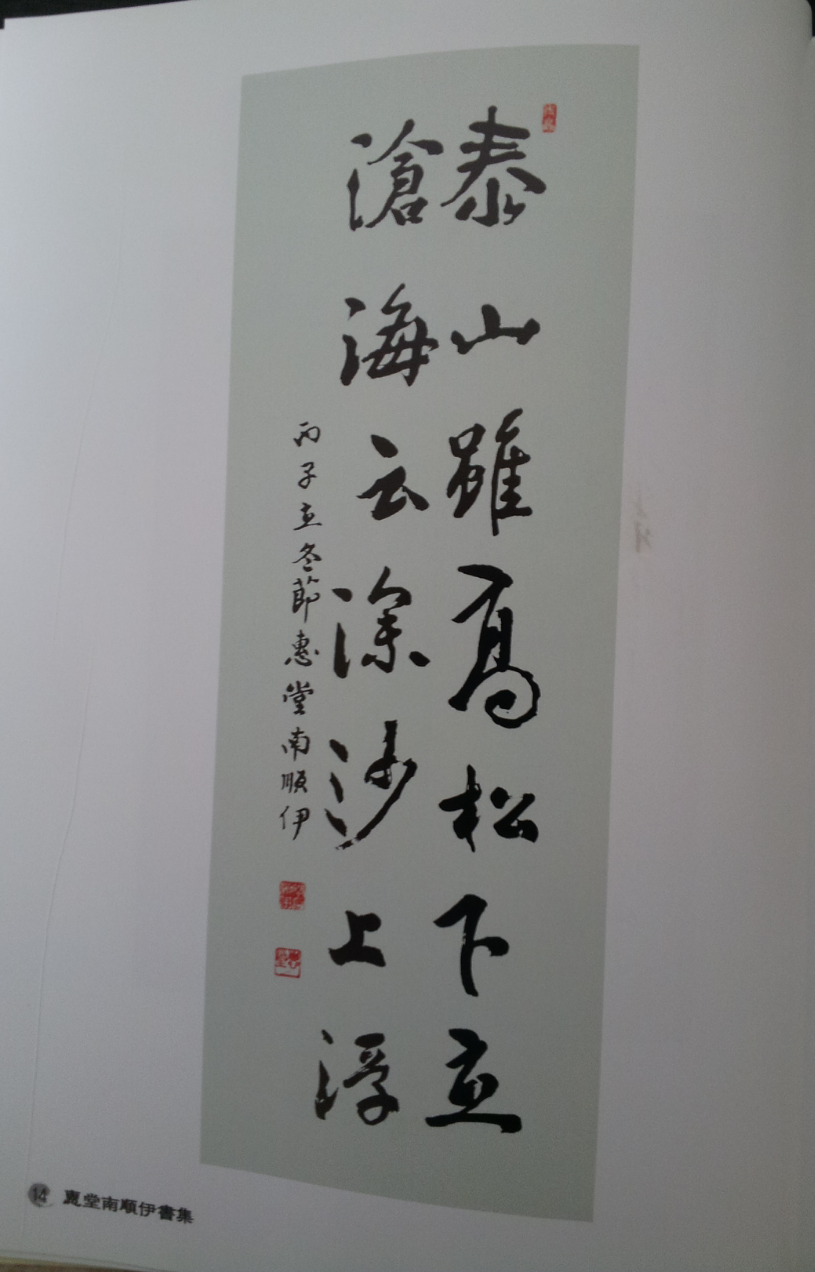 泰山雖高松下立
滄海云深沙上浮
丙子立冬節惠堂南順伊
14 惠堂南順伊書集